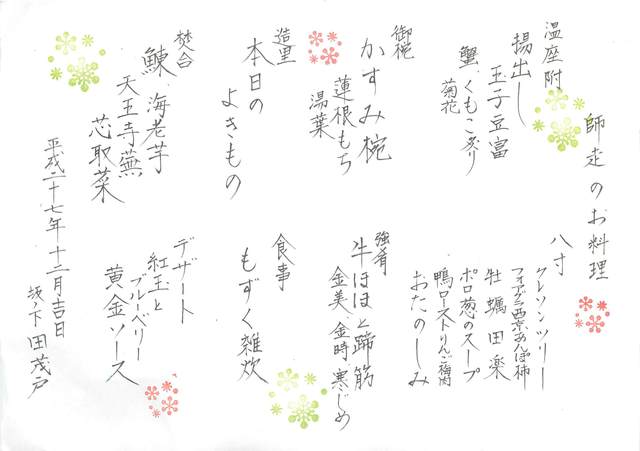 師走のお料理
温座附
揚出し
玉子豆富
蟹 くもこ炙り
菊花
御椀
かすみ椀
蓮根もち
湯葉
造里
本日の
よきもの
焚合
鰊 海老芋
天王寺蕪
芯取菜
八寸
クレソンツリー
フォアグラ西京あんぽ柿
牡蠣田楽
ポロ葱のスープ
鴨ローストりんご梅肉
おたのしみ
強肴
牛ほほと蹄筋
金美 金時 寒じめ
食事
もずく雑炊
デザート
紅玉と
ブルーベリー
黄金ソース
平成二十七年十二月吉日
坂ノ下田茂戸